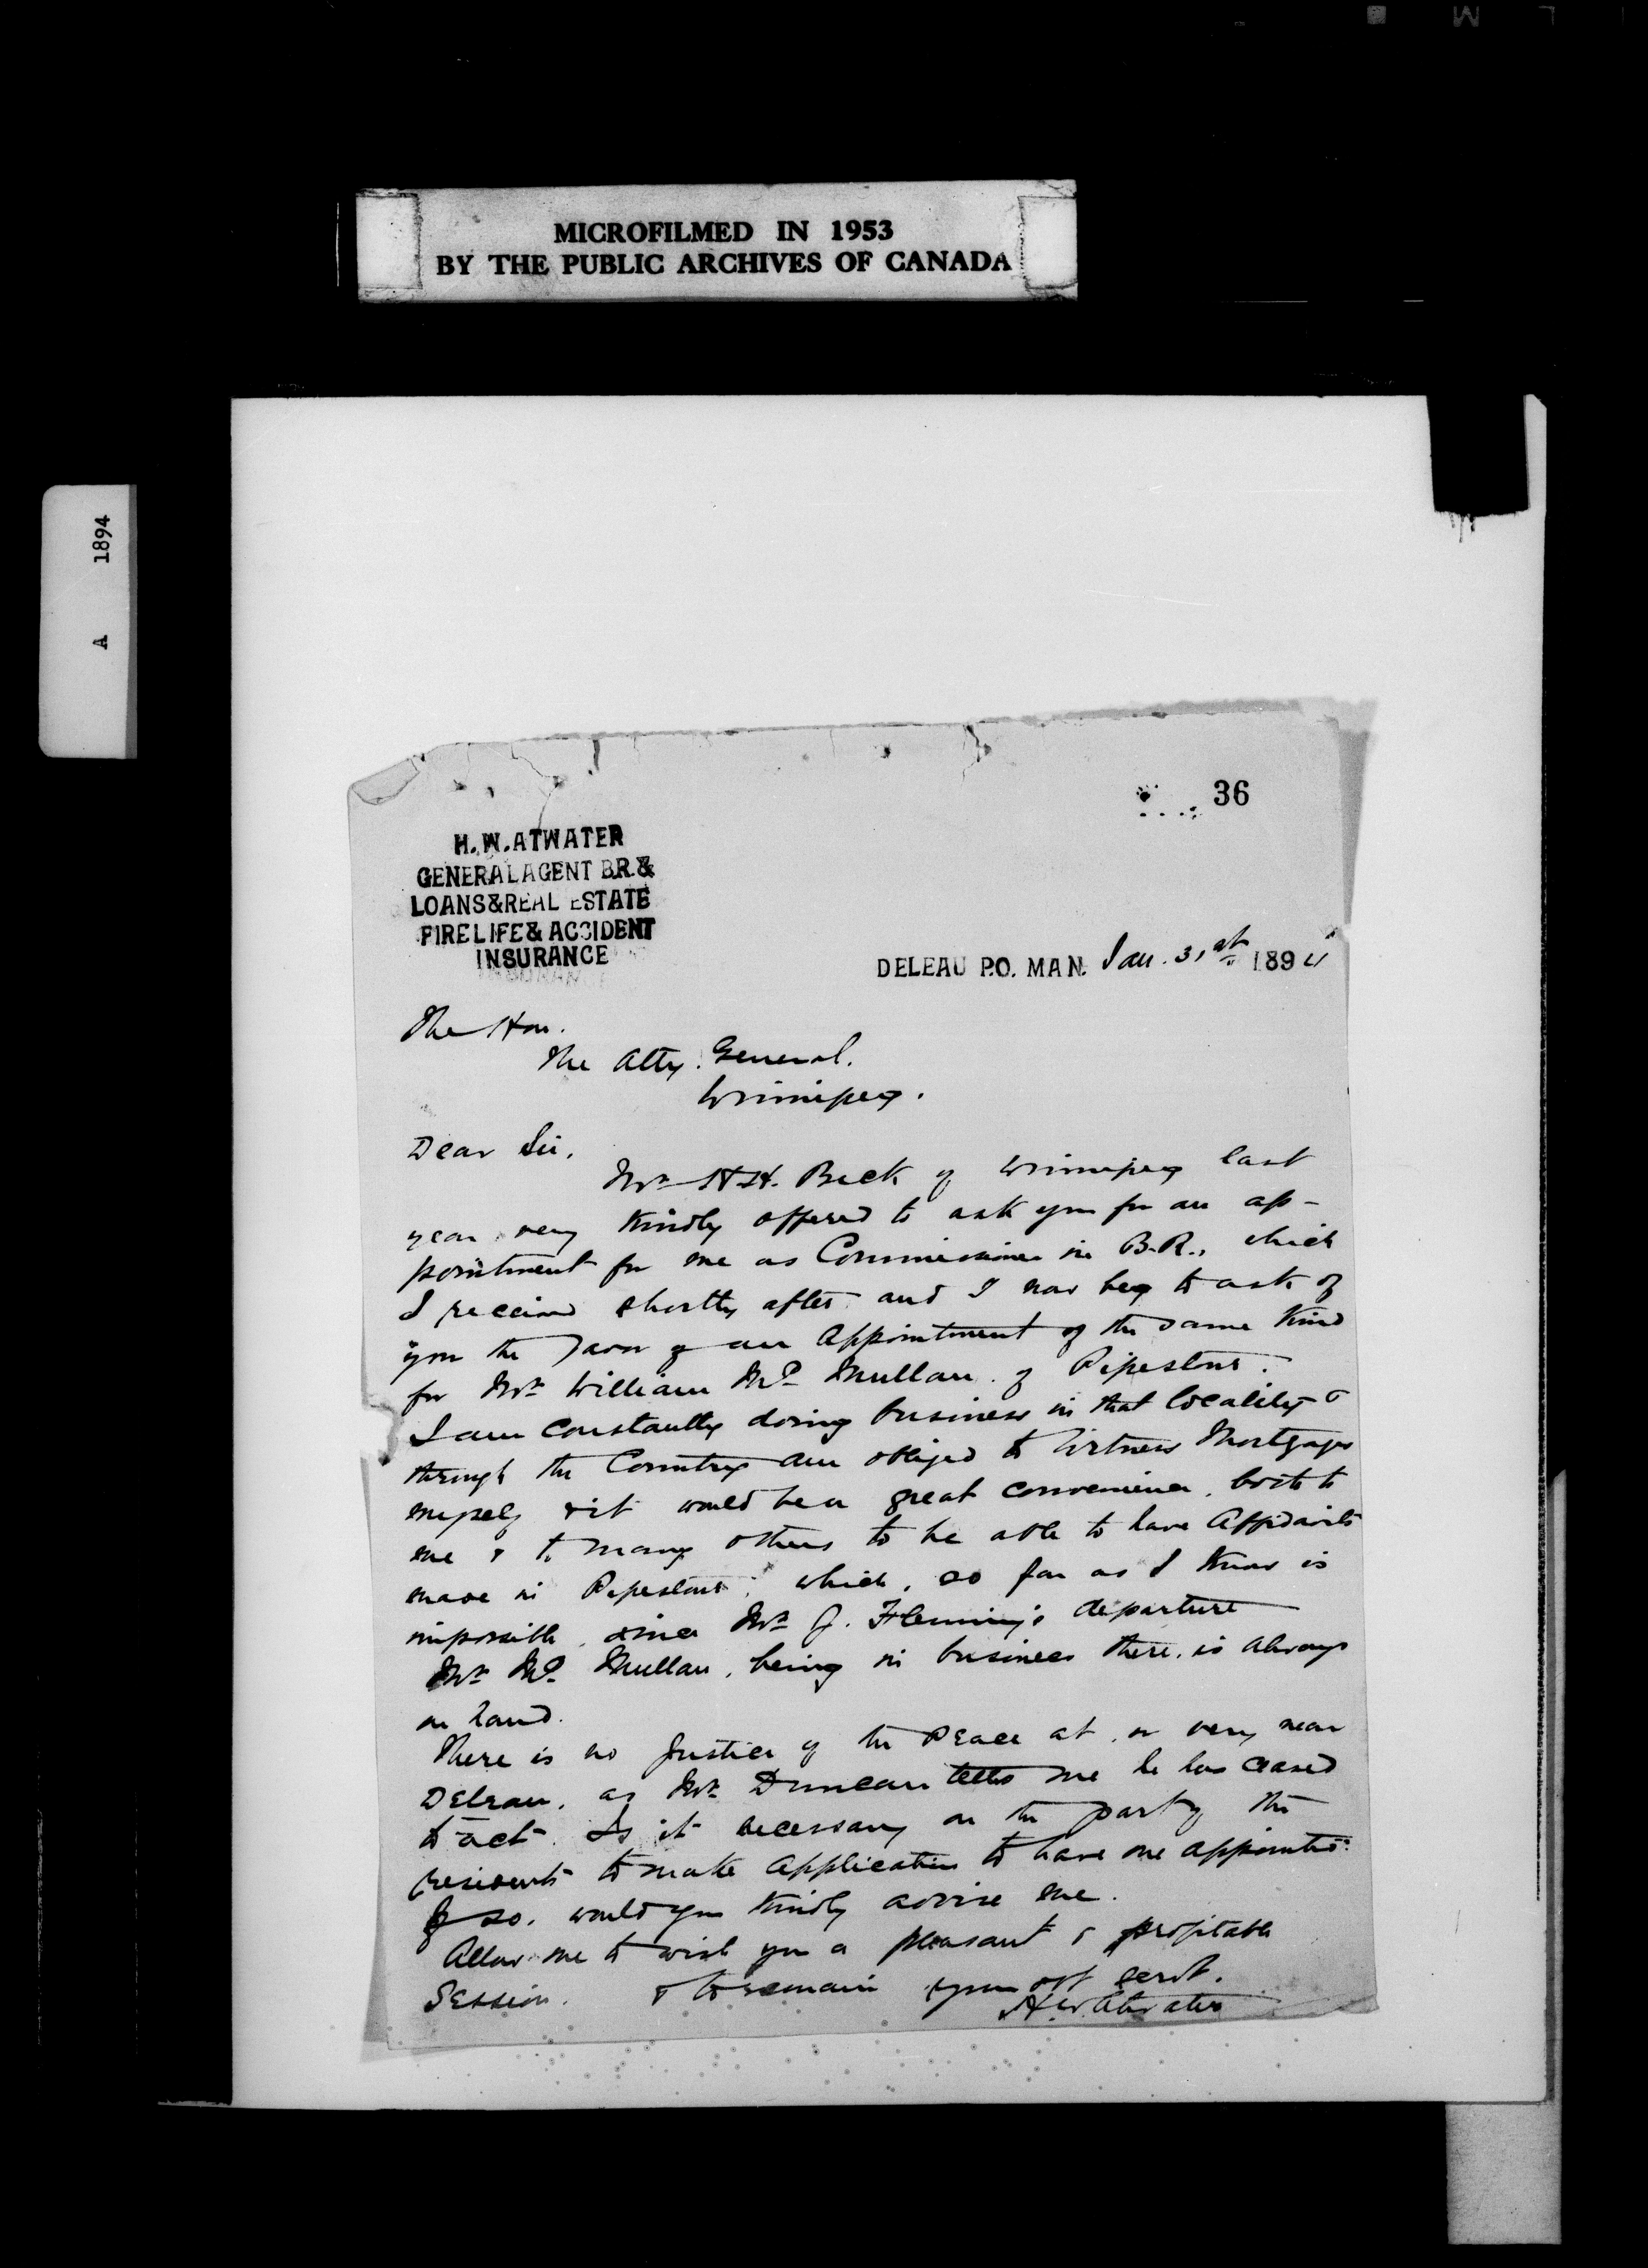 MICROFILMED IN 1953
BY THE PUBLIC ARCHIVES OF CANADA
A 1894
36
H. W. ATWATER
GENERAL AGENT B.R. &
LOANS & REAL ESTATE
FIRE LIFE & ACCIDENT
INSURANCE
DELEAU P.O. MAN. Jan. 31st 1894
The Hon.
The Atty. General.
Winnipeg.
Dear Sir,
Mr. H.H. Beck of Winnipeg last
year very kindly offered to ask you for an ap-
pointment for me as Commissioner in B.R., which
I received shortly after and I now beg to ask of
you the favor of an Appointment of the same kind
for Mr. William Mc Mullan of Pipestone.
I am constantly doing business in that locality &
through the Country am obliged to Witness Mortgages
myself & it would be a great convenience, both to
me & to many others to be able to have Affidavits
made in Pipestone, which, so far as I know is
impossible, since Mr. J. Fleming's departure
Mr. Mc Mullan, being in business there, is always
on hand.
There is no Justice of the Peace at, or very near
Deleau, as Mr. Duncan tells me he has ceased
to act. Is it necessary on the part of the
residents to make application to have one appointed?
If so, would you kindly advise me.
Allow me to wish you a pleasant & profitable
Session. & to remain your obt servt.
H.W. Atwater